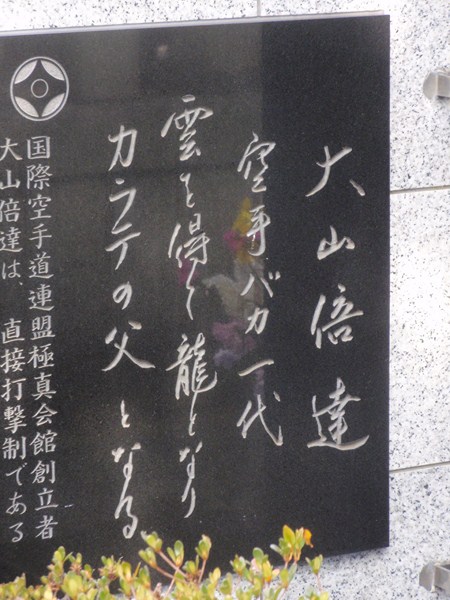 大山倍達
空手バカ一代
雲を得て龍となり
カラテの父となる
国際空手道連盟極真会館創立者
大山倍達は、直接打撃制である